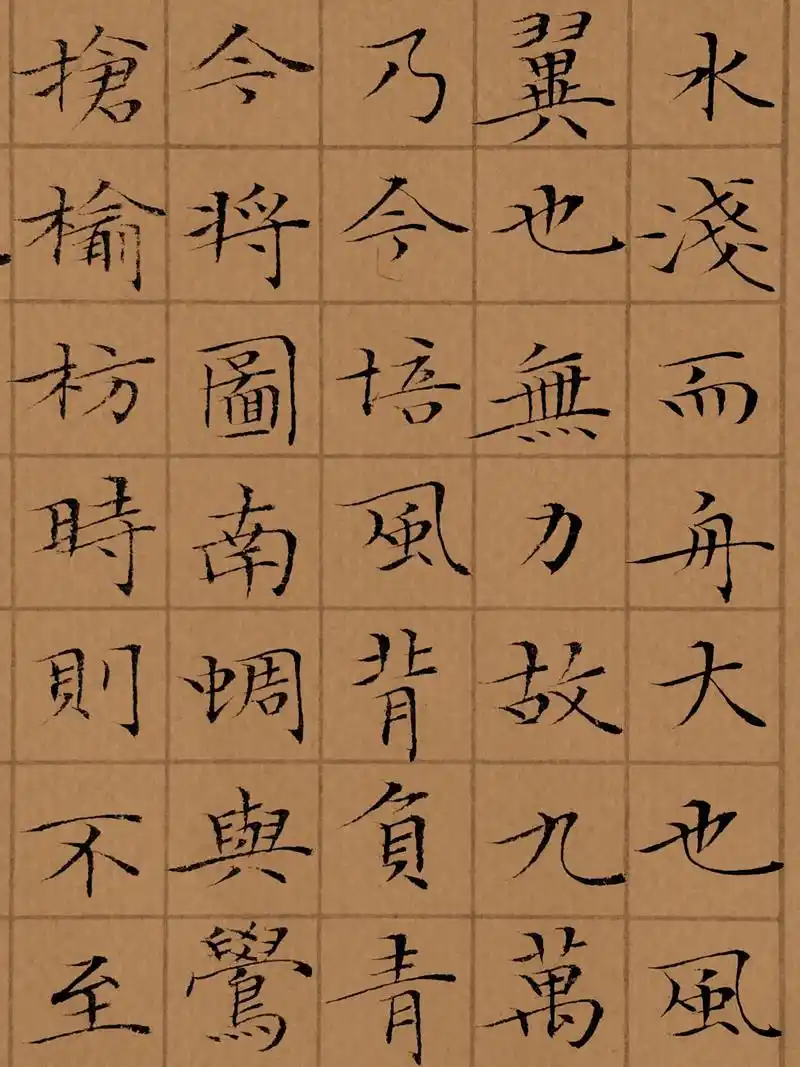 水淺而舟大也風
翼也無力故九萬
乃今培風背負青
今將圖南蜩與鷽
搶榆枋時則不至